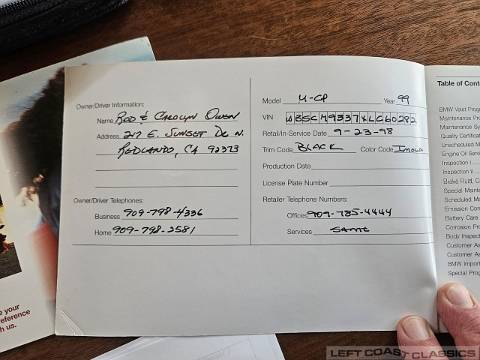 Owner/Driver Information:
Name ROD & CAROLYN OWEN
Address 217 E. SUNSET DR N.
REDLANDS, CA 92373
Owner/Driver Telephones:
Business 909-798-4336
Home 909-798-2581
Model M-CP Year 99
VIN
Retail/In-Service Date 9-23-98
Trim Code BLACK Color Code IMOLA
Production Date
License Plate Number
Retailer Telephone Numbers:
Offices 909-785-4444
Services SAME
Table of Cont
BMW Vout Prog
Maintenance
Maintenance Sy
Quality Certificat
Unscheduled M
Engine Oil Servi
Inspection I
Inspection II
Brake Fluid, C
Special Mainte
Scheduled Ma
Emission
Battery Care
Corrosion Pr
Body Inspect
Customer As
Customer As
BMW Import
Special Prog
e your
reference
h us.
LEFT COAST CLASSICS